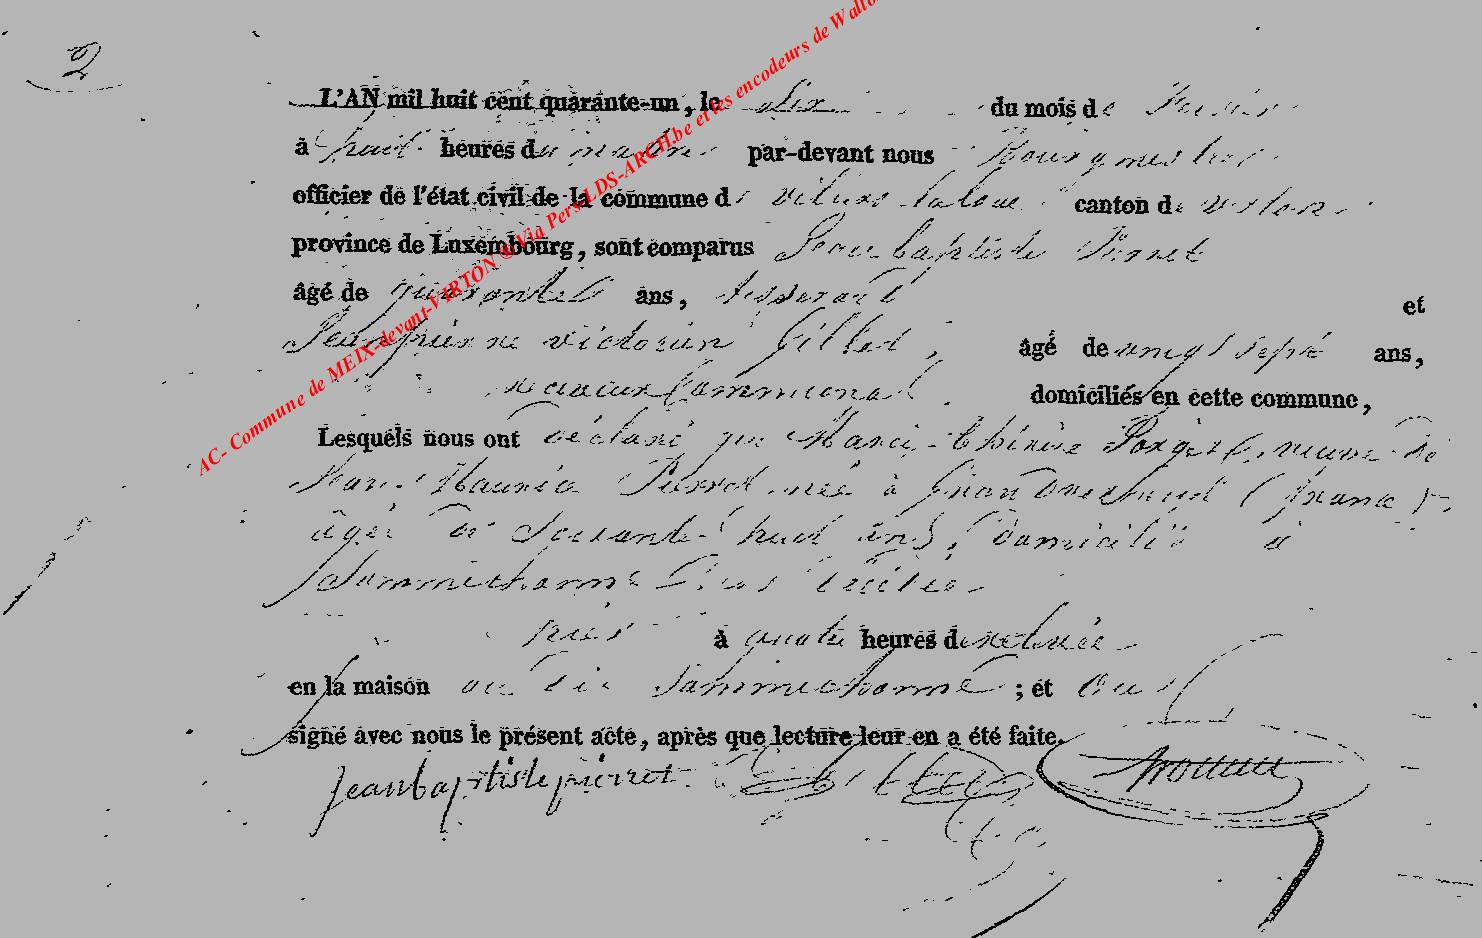 2
L'AN mil huit cent quarante-un, le Six du mois de
à huit heures du matin par-devant nous Bourgmestre
officier de l'état civil de la commune de canton de virton
province de Luxembourg, sont comparus Jean baptiste Pierret
âgé de quarante ans, et
Jean pierre victorien Gillet, âgé de vingt sept ans,
communal domiciliés en cette commune,
Lesquels nous ont déclaré que Marie-thérèse veuve de
née à (france)
âgée de soixante huit ans, domiciliée à
Sommethonne est décédée
à quatre heures de relevée
en la maison au dit Sommethonne ; et ont
signé avec nous le présent acte, après que lecture leur en a été faite.
Jean baptiste pierret
AC- Commune de MEIX-devant-VIRTON @ Via Pers LDS-ARCH.be et les encodeurs de